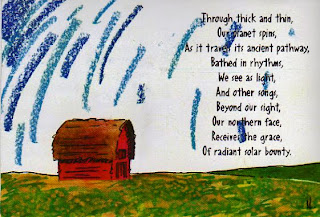 Through thick and thin,
Our planet spins,
As it travels its ancient pathway,
Bathed in rhythms,
We see as light,
And other songs,
Beyond our sight,
Our northern face,
Receives the grace,
Of radiant solar bounty.